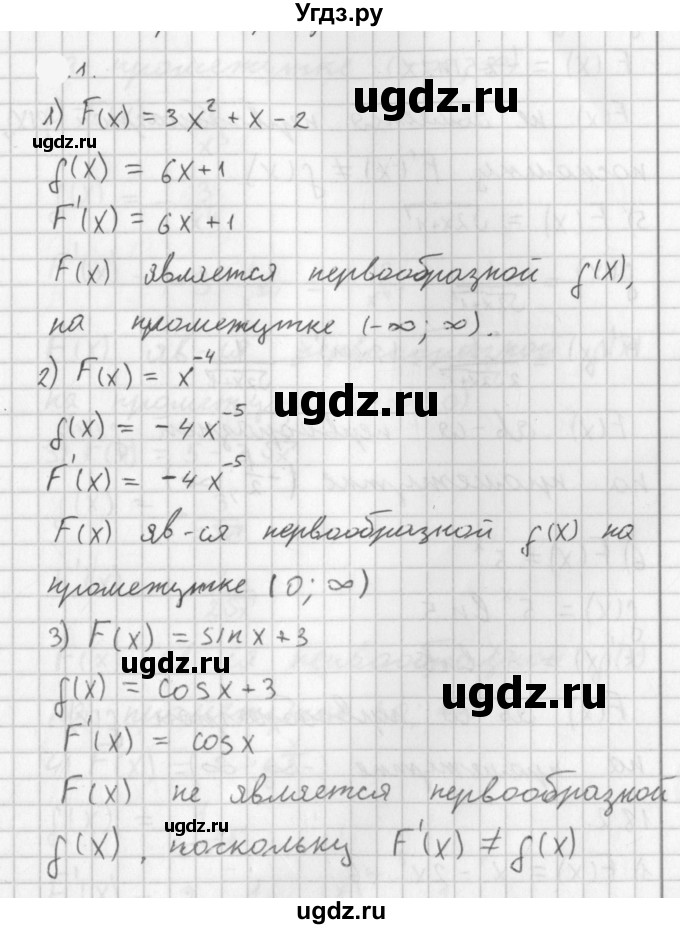 Угдз.ру
.1.
1) F(x) = 3x² + x - 2
f(x) = 6x+1
F'(x) = 6x+1
F(x) является первообразной f(x),
на промежутке (-∞; ∞).
2) F(x) = x⁻⁴
f(x) = -4x⁻⁵
F'(x) = -4x⁻⁵
F(x) яв-ся первообразной f(x) на
промежутке (0; ∞)
3) F(x) = sin x + 3
f(x) = cos x + 3
F'(x) = cos x
F(x) не является первообразной
f(x), поскольку F'(x) ≠ f(x)
ugdz.ru
ugdz.ru
ugdz.ru
ugdz.ru
ugdz.ru
ugdz.ru
ugdz.ru